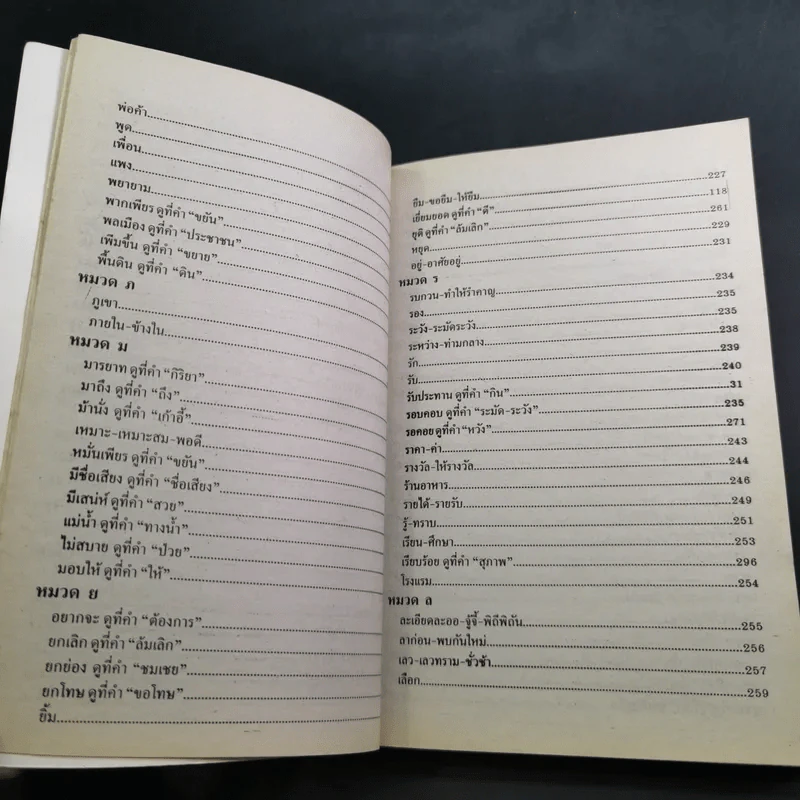 พ่อค้า
พูด
เพื่อน
แพง
พยายาม
พากเพียร ดูที่คำ “ขยัน”
พลเมือง ดูที่คำ “ประชาชน”
เพิ่มขึ้น ดูที่คำ “ขยาย”
พื้นดิน ดูที่คำ “ดิน”
หมวด ภ
ภูเขา
ภายใน-ข้างใน
หมวด ม
มารยาท ดูที่คำ “กิริยา”
มาถึง ดูที่คำ “ถึง”
ม้านั่ง ดูที่คำ “เก้าอี้”
เหมาะ-เหมาะสม-พอดี
หมั่นเพียร ดูที่คำ “ขยัน”
มีชื่อเสียง ดูที่คำ “ชื่อเสียง”
มีเสน่ห์ ดูที่คำ “สวย”
แม่น้ำ ดูที่คำ “ทางน้ำ”
ไม่สบาย ดูที่คำ “ป่วย”
มอบให้ ดูที่คำ “ให้”
หมวด ย
อยากจะ ดูที่คำ “ต้องการ”
ยกเลิก ดูที่คำ “ล้มเลิก”
ยกย่อง ดูที่คำ “ชมเชย”
ยกโทษ ดูที่คำ “ขอโทษ”
ยิ้ม
ยืม-ขอยืม-ให้ยืม 227
เยี่ยมยอด ดูที่คำ “ดี” 118
ยุติ ดูที่คำ “ล้มเลิก” 261
หยุด 229
อยู่-อาศัยอยู่ 231
หมวด ร
รบกวน-ทำให้รำคาญ 234
รอง 235
ระวัง-ระมัดระวัง 235
ระหว่าง-ท่ามกลาง 238
รัก 239
รับ 240
รับประทาน ดูที่คำ “กิน” 31
รอบคอบ ดูที่คำ “ระมัด-ระวัง” 235
รอคอย ดูที่คำ “หวัง” 271
ราคา-ค่า 243
รางวัล-ให้รางวัล 244
ร้านอาหาร 246
รายได้-รายรับ 249
รู้-ทราบ 251
เรียน-ศึกษา 253
เรียบร้อย ดูที่คำ “สุภาพ” 296
โรงแรม 254
หมวด ล
ละเอียดละออ-จู้จี้-พิถีพิถัน 255
ลาก่อน-พบกันใหม่ 256
เลว-เลวทราม-ชั่วช้า 257
เลือก 259